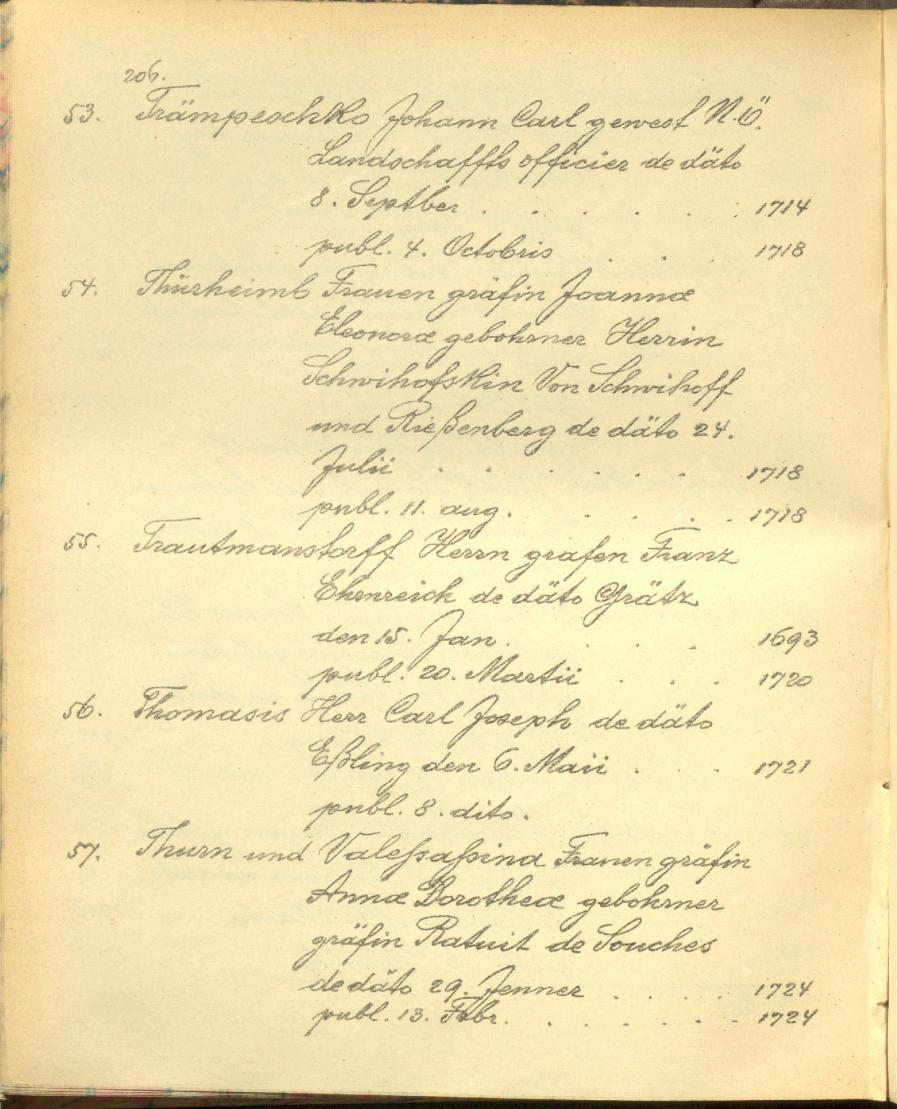 206.
53. Trämpeschko Johann Carl gewest N.Ö.
Landschaffts officier de däto
8. Septber . . . . . . 1714
publ. 4. Octobris . . . 1718
54. Thürheimb Frauen gräfin Joannæ
Eleonoræ gebohrner Herrin
Schwihofskin Von Schwihoff
und Rießenberg de däto 24.
Julii . . . . . . 1718
publ. 11. aug. . . . . 1718
55. Trautmanstorff Herrn grafen Franz
Ehrnreich de däto Grätz
den 15. Jan. . . . 1693
publ. 20. Martii . . . 1720
56. Thomasis Herr Carl Joseph de däto
Eßling den 6. Maii . . . 1721
publ. 8. dito.
57. Thurn und Valeßaßina Frauen gräfin
Annæ Dorotheæ gebohrner
gräfin Ratuit de Souches
de däto 29. Jenner . . . . 1724
publ. 13. Febr. . . . . . . 1724